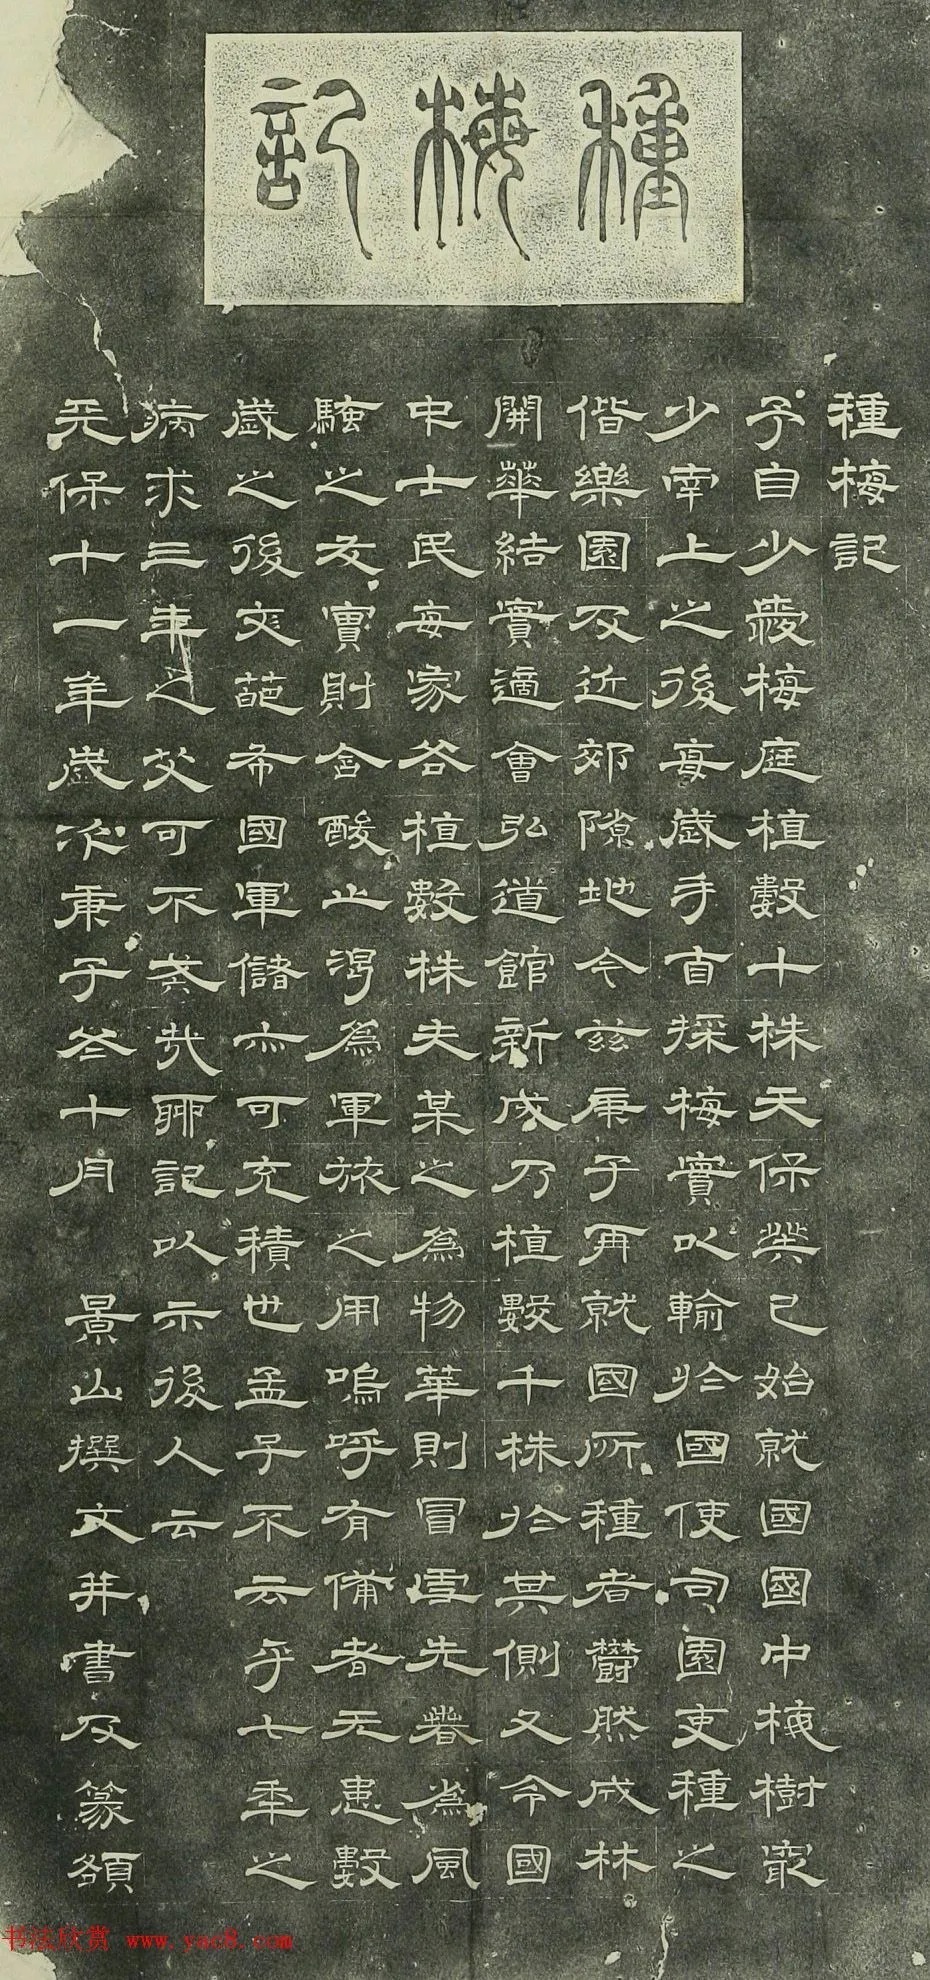 種梅記
種梅記
予自少愛梅庭植數十株天保癸巳始就國國中梅樹最
少南上之後每歲手自採梅實以輸於國使司園吏種之
偕樂園及近郊隙地今茲庚子再就國所種者鬱然成林
開華結實適會弘道館新成乃植數千株於其側又令國
中士民每家各植數株夫某之為物華則冒雪先春為風
騷之友實則含酸止渴為軍旅之用嗚呼有備者无患數
歲之後文葩布國軍儲亦可充積也孟子不云乎七年之
病求三年之艾可不戒哉聊記以示後人云
天保十一年歲次庚子冬十月 景山撰文并書及篆額
书法欣赏 www.yac8.com